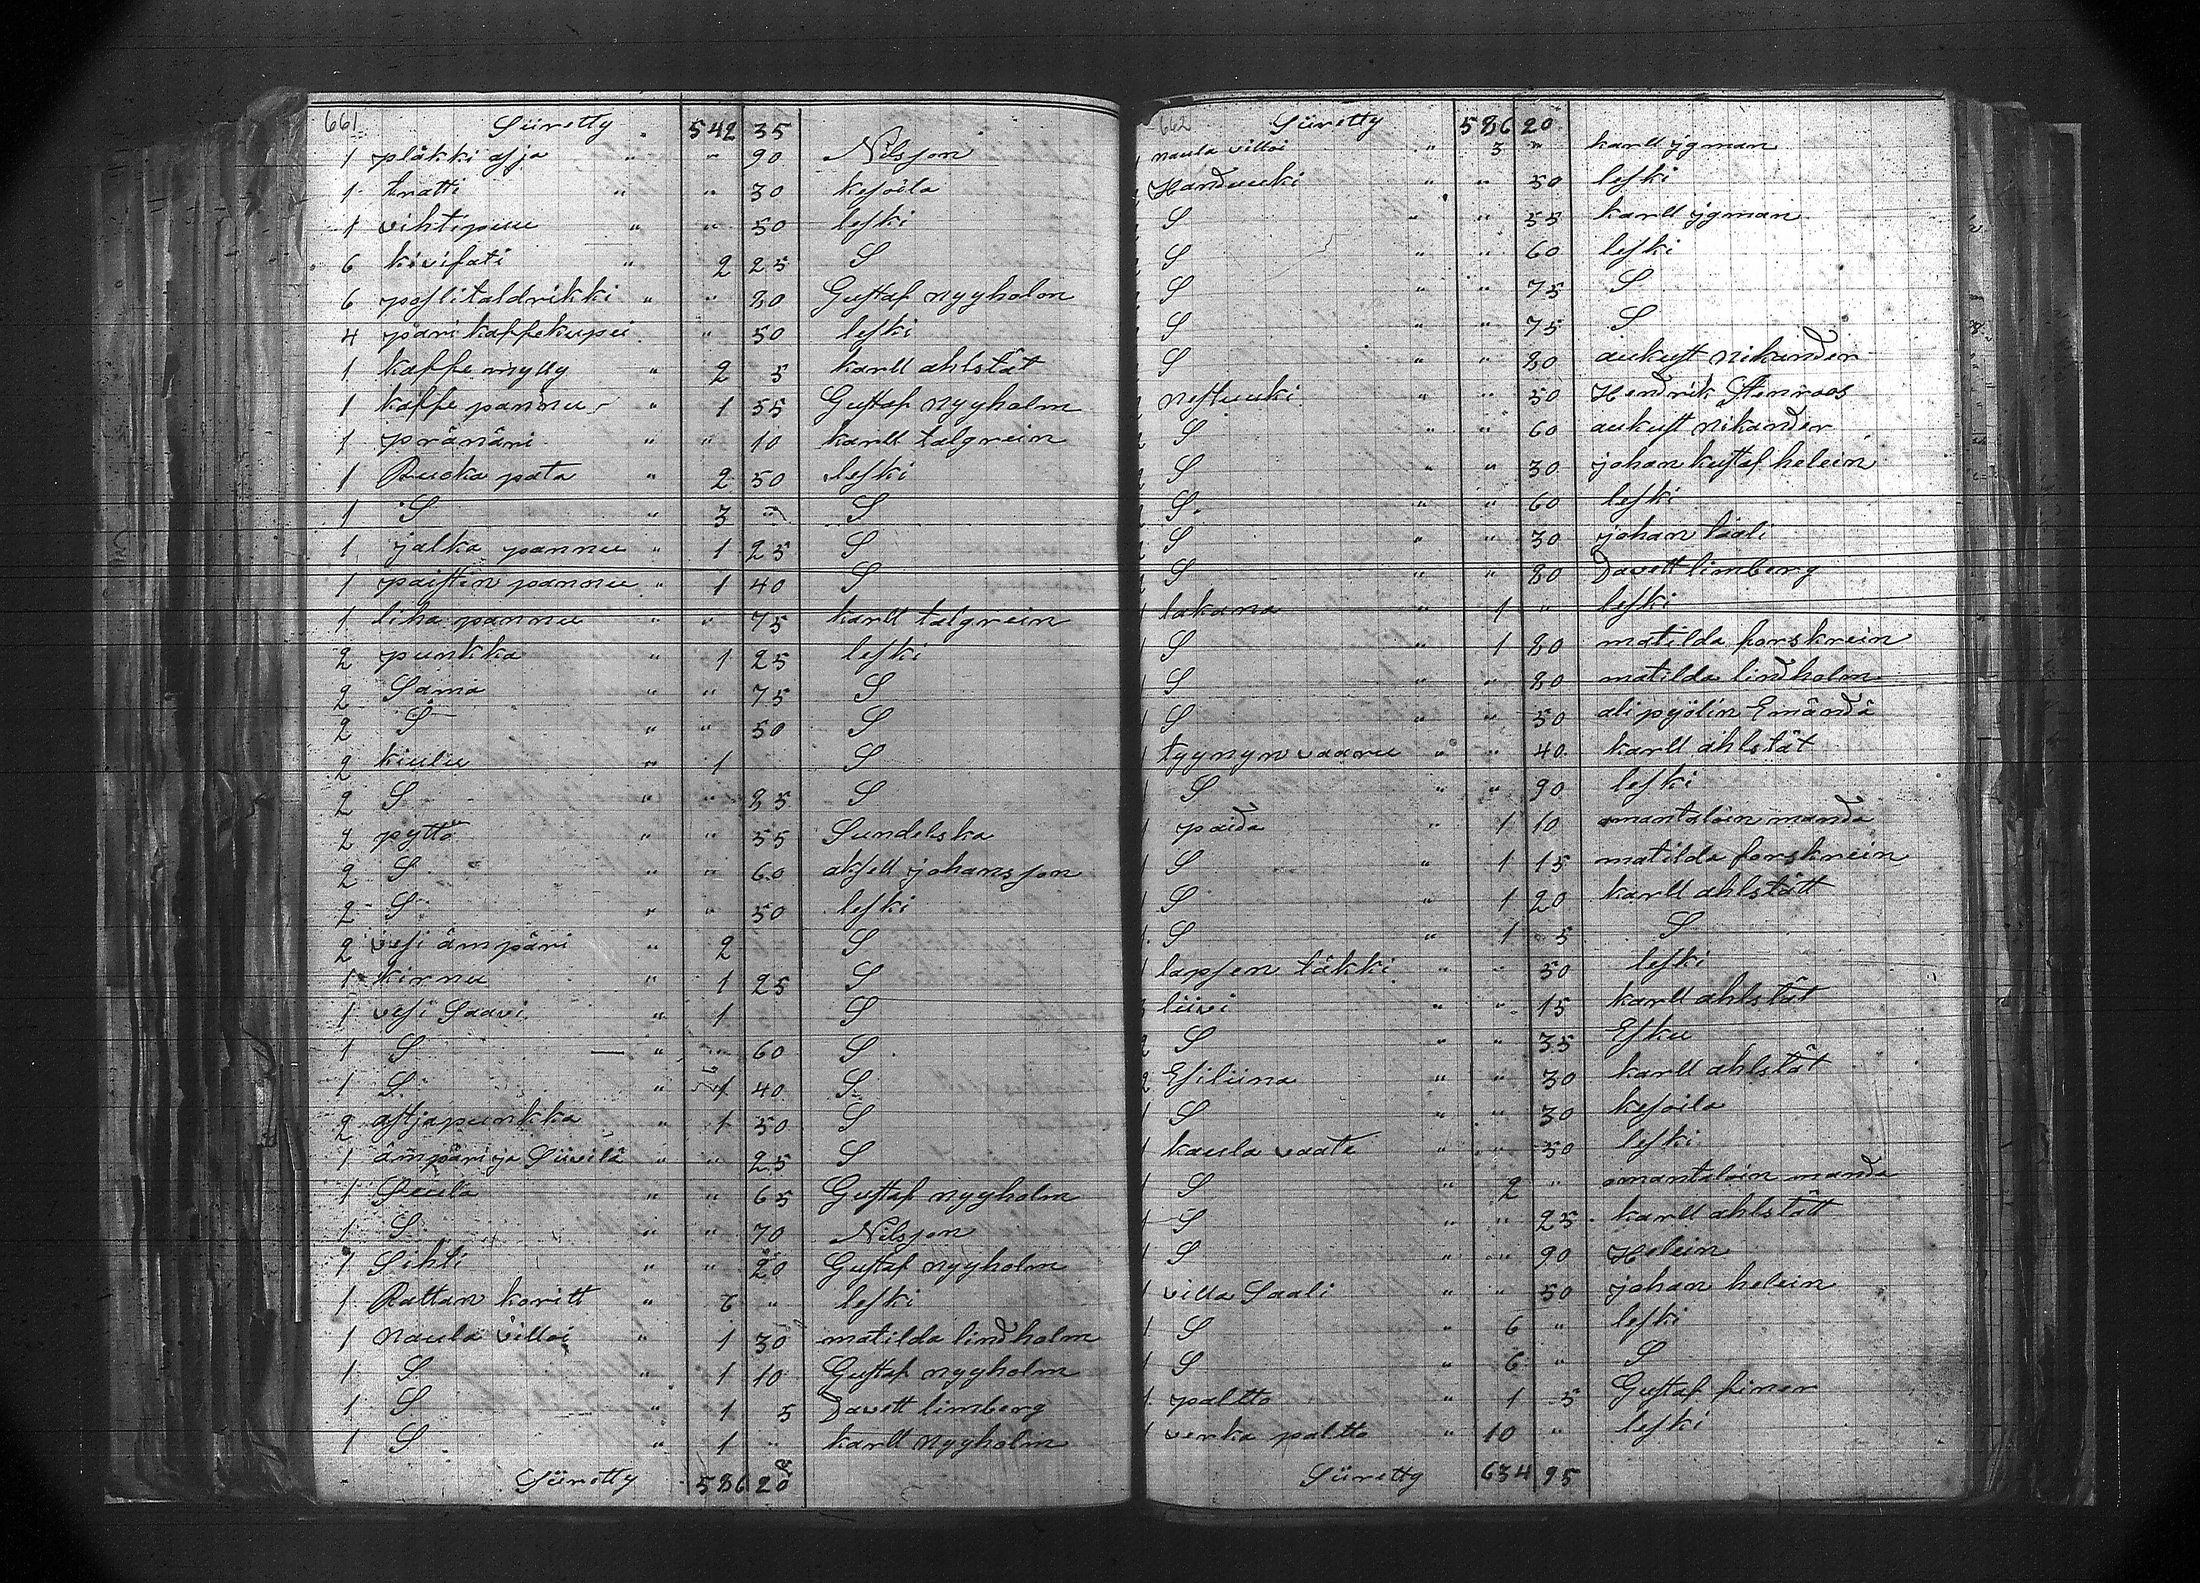 661 Siiretty 542 35
1 pläkki asja " " 90 Nilsson
1 tratti " " 30 kesoila
1 vihtipuu " " 50 leski
6 kivifati " 2 25 S
6 posli taldrikki " " 80 Gustaf nyyholm
4 päri kaffekupei " 50 leski
1 kaffe mylly " 2 5 karll ahlstät
1 kaffe pannu " 1 55 Gustaf nyyholm
1 pränäri " " 10 karll talgrein
1 Ruoka pata " 2 50 leski
1 S " 3 " S
1 jalka pannu " 1 25 S
1 paistin pannu " 1 40 S
1 liha pannu " " 75 karll talgrein
2 punkka " 1 25 leski
2 Sama " " 75 S
2 S " " 50 S
2 kiulu " 1 S
2 S " " 85 S
2 pytto " " 55 Sundelska
2 S " " 60 aksell johansson
2 S " " 50 leski
2 vesi ämpäri " 2 S
1 kirnu " 1 25 S
1 vesi Saavi " 1 S
1 S " " 60 S
1 S " 1 40 S
2 astjapunkka " 1 50 S
1 ämpäri ja Siivilä " " 25 S
1 Seula " " 65 Gustaf nyyholm
1 S " " 70 Nilsson
1 Sihti " " 20 Gustaf nyyholm
1 Rattan koritt " 6 " leski
1 naula villoi " 1 30 matilda lindholm
1 S " 1 10 Gustaf nyyholm
1 S " 1 5 Davett limberg
1 S " 1 " karll nyyholm
Siiretty 586 20
662 Siiretty 586 20
naula villoi " 3 " karll ygman
Handuuki " " 50 leski
S " " 55 karll ygman
S " " 60 leski
S " " 75 S
S " " 75 S
S " " 80 aukust nikander
nestuuki " " 50 Hendrik Stenroos
S " " 60 aukust nikander
S " " 30 johan kustaf helein
S " " 60 leski
S " " 30 johan tääli
S " " 80 Davett limberg
lakana " 1 " leski
S " 1 80 matilda forskrein
S " " 80 matilda lindholm
S " " 50 alipyölin Emändä
1 tyynyn vaaru " " 40 karll ahlstät
1 S " " 90 leski
1 paida " 1 10 mantaloin manda
1 S " 1 15 matilda forskrein
1 S " 1 20 karll ahlstätt
1 S " 1 5 S
1 lapsen täkki " " 50 leski
3 liivi " " 15 karll ahlstät
2 S " " 35 Esku
2 Esiliina " " 30 karll ahlstät
1 S " " 30 kesoila
1 kaula vaate " " 50 leski
1 S " 2 " mantaloin manda
1 S " " 25 karll ahlstätt
1 S " " 90 Helein
1 villa Saali " " 50 johan helein
1 S " 6 " leski
1 S " 6 " S
1 paltto " 1 5 Gustaf finer
1 verka paltto " 10 " leski
Siiretty 634 95